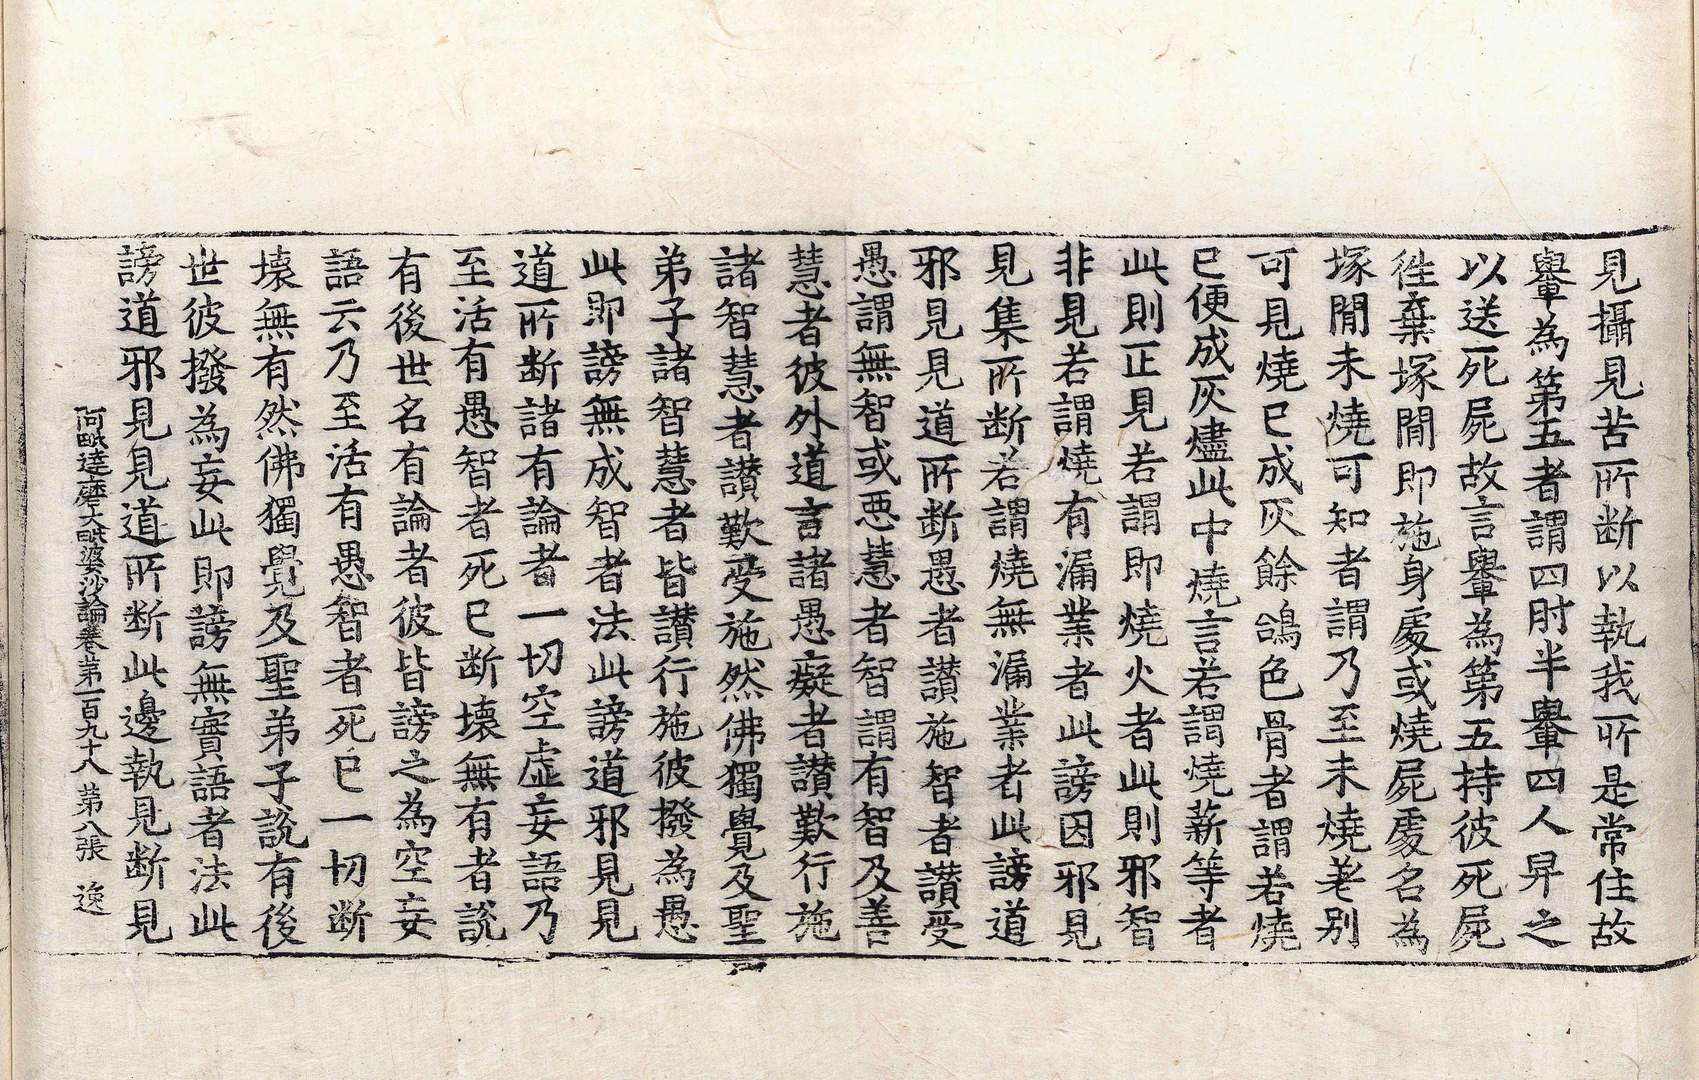 見攝見苦所断以執我所是常住故
轝為第五者謂四肘半轝四人舁之
以送死屍故言轝為第五持彼死屍
徃棄塚閒即施身處或燒屍處名為
塚閒未燒可知者謂乃至未燒老别
可見燒已成灰餘鴿色骨者謂若燒
已便成灰燼此中燒言若謂燒薪等者
此則正見若謂即燒火者此則邪智
非見若謂燒有漏業者此謗因邪見
見集所断若謂燒無漏業者此謗道
邪見見道所断愚者讃施智者讃受
愚謂無智或悪慧者智謂有智及善
慧者彼外道言諸愚癡者讃歎行施
諸智慧者讃歎受施然佛獨覺及聖
弟子諸智慧者皆讃行施彼撥為愚
此即謗無成智者法此謗道邪見見
道所断諸有論者一切空虛妄語乃
至活有愚智者死已断壞無有者說
有後世名有論者彼皆謗之為空妄
語云乃至活有愚智者死已一切断
壞無有然佛獨覺及聖弟子說有後
世彼撥為妄此即謗無實語者法此
謗道邪見見道所断此邊執見断見
阿毗達磨大毗婆沙論卷第一百九十八 第八張 逸